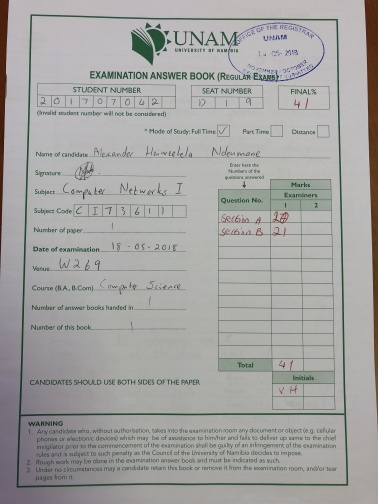 UNAM
UNIVERSITY OF NAMIBIA
OFFICE OF THE REGISTRAR
UNAM
-05- 2018
EXAMINATION ANSWER BOOK (REGULAR EXAMS)
STUDENT NUMBER
SEAT NUMBER
FINAL%
201707042
D19
41
(Invalid student number will not be considered)
* Mode of Study: Full Time ✓ Part Time Distance
Name of candidate Alexander Ndeumane
Signature
Subject Computer Networks I
Subject Code CIT3611
Number of paper 1
Date of examination 18-05-2018
Venue W269
Course (B.A., B.Com) Computer Science
Number of answer books handed in 1
Number of this book 1
Enter here the Numbers of the question answered
Marks
Question No.
Examiners
1 2
Section A
Section B 21
Total 41
Initials
VH
CANDIDATES SHOULD USE BOTH SIDES OF THE PAPER
WARNING
1. Any candidate who, without authorisation, takes into the examination room any document or object (e.g. cellular
phones or electronic devices) which may be of assistance to him/her and fails to deliver up same to the chief
invigilator prior to the commencement of the examination shall be guilty of an infringement of the examination
rules and is subject to such penalty as the Council of the University of Namibia decides to impose.
2. Rough work may be done in the examination answer book and must be indicated as such.
3. Under no circumstances may a candidate retain this book or remove it from the examination room, and/or tear
pages from it.